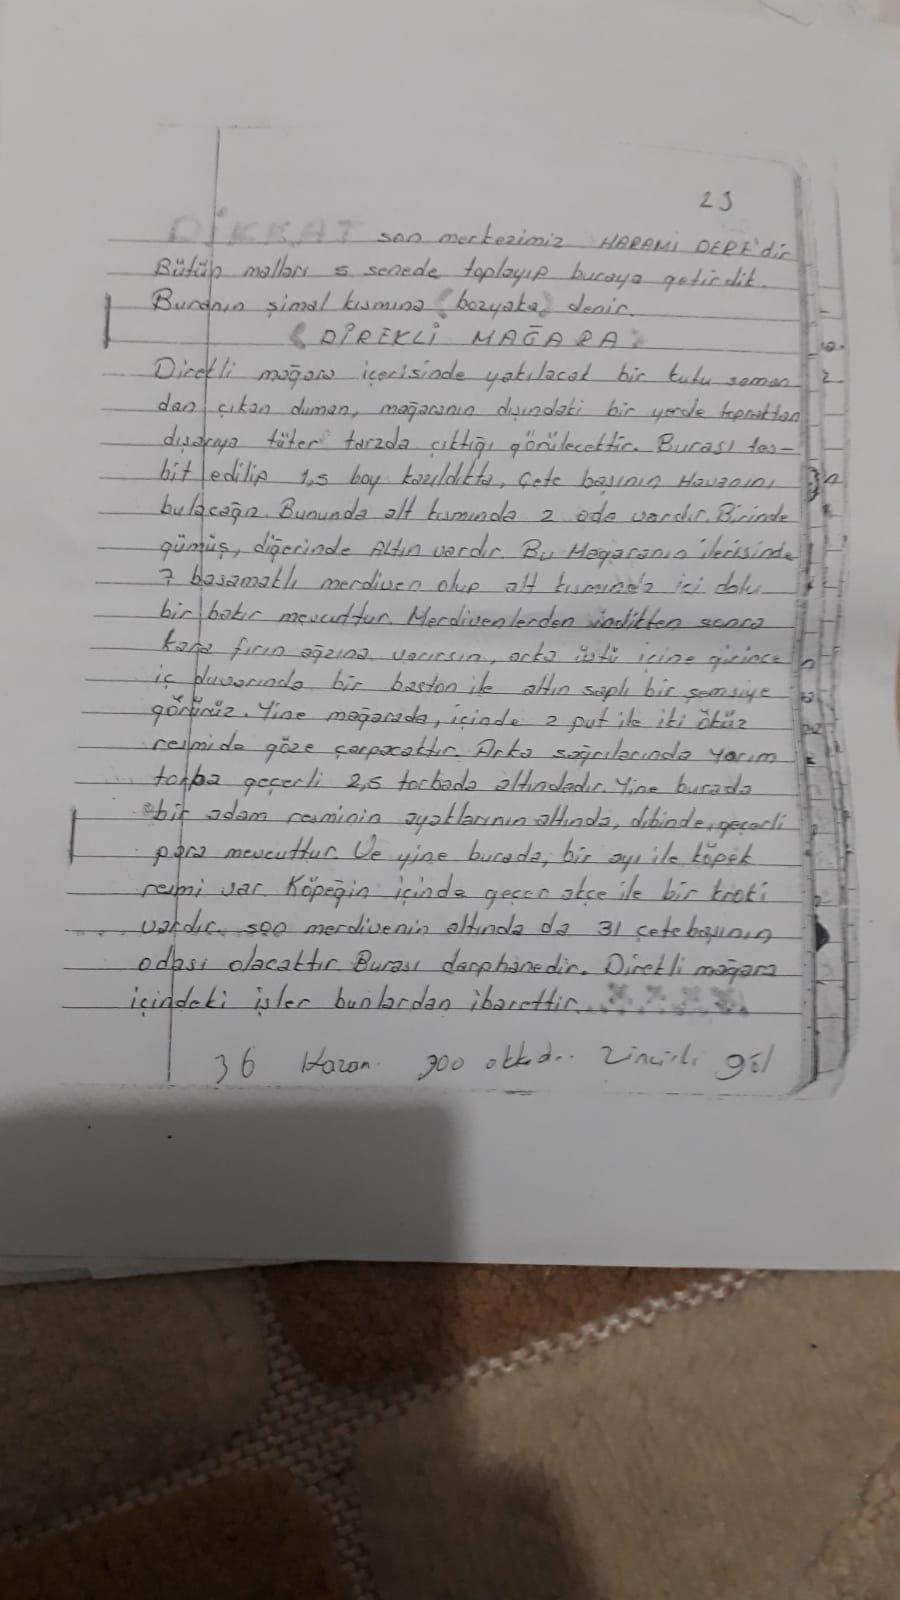 23
DİKKAT son merkezimiz HARAMİ DERE'dir
Bütün malları 5 senede toplayıp buraya getirdik.
Buranın şimal kısmına (bozyaka) denir.
(DİREKLİ MAĞARA)
Direkli mağara içerisinde yakılacak bir kutu saman
dan çıkan duman, mağaranın dışındaki bir yerde topraktan
dışarıya tüter tarzda çıktığı görülecektir. Burası tes-
bit edilip 1,5 boy kazıldıkta, çete başının Havanını
bulacağız. Bununda alt kısmında 2 oda vardır. Birinde
gümüş, diğerinde Altın vardır. Bu Mağaranın ilerisinde
7 basamaklı merdiven olup alt kısmında içi dolu
bir bakır mevcuttur. Merdivenlerden indikten sonra
kara fırın ağzına varırsın, arka üstü içine girince
iç duvarında bir baston ile altın saplı bir şemsiye
görürüz. Yine mağarada, içinde 2 put ile iki öküz
resmide göze çarpacaktır. Arka sağrılarında yarım
torba geçerli 2,5 torbada altındadır. Yine burada
bir adam resminin ayaklarının altında, dibinde, geçerli
para mevcuttur. Ve yine burada, bir ayı ile köpek
resmi var. Köpeğin içinde geçer akçe ile bir kroki
vardır. son merdivenin altında da 31 çetebaşının
odası olacaktır. Burası darphanedir. Direkli mağara
içindeki işler bunlardan ibarettir.
36 Kazan 900 okkadır. Zincirli göl